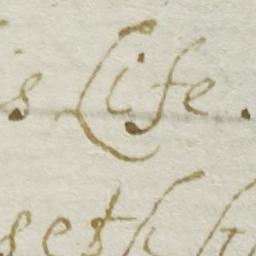 is Life.
seth h